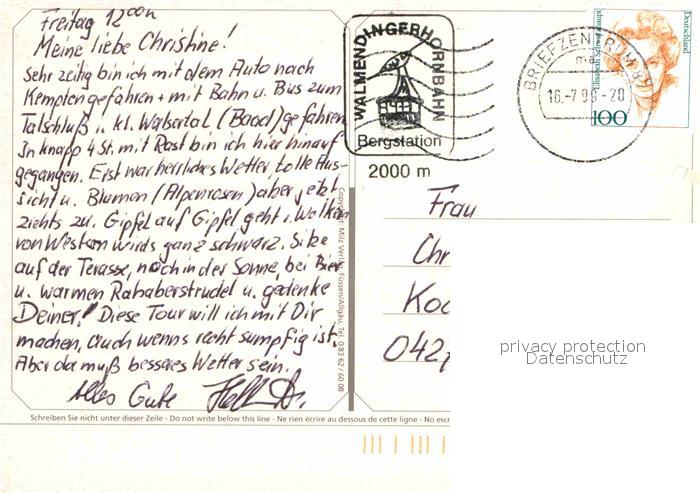 Freitag 12 00h
Meine liebe Christine!
Sehr zeitig bin ich mit dem Auto nach
Kempten gefahren + mit Bahn u. Bus zum
Talschluß i. kl. Walsertal (Baad) gefahren
In knapp 4 St. mit Rast bin ich hier hinauf
gegangen. Erst war herrliches Wetter, tolle Aus-
sicht u. Blumen (Alpenrosen) aber jetzt
ziehts zu. Gipfel auf Gipfel geht i. Wolken
von Westen wirds ganz schwarz. Sitze
auf der Terasse, noch in der Sonne, bei Bier
u. warmen Rababerstrudel u. gedenke
Deiner! Diese Tour will ich mit Dir
machen, auch wenns recht sumpfig ist.
Aber da muß besseres Wetter sein.
Alles Gute
Schreiben Sie nicht unter dieser Zeile - Do not write below this line - Ne rien écrire au dessous de cette ligne - No scr
Copyright: Milz Verlag, Füssen/Allgäu, Tel. 0 83 62 / 60 08
WALMENDINGERHORNBAHN
Bergstation
2000 m
BRIEFZENTRUM 87
ma
16.-7.96-20
Deutschland
100
Frau
Chr
Koc
042
privacy protection
Datenschutz